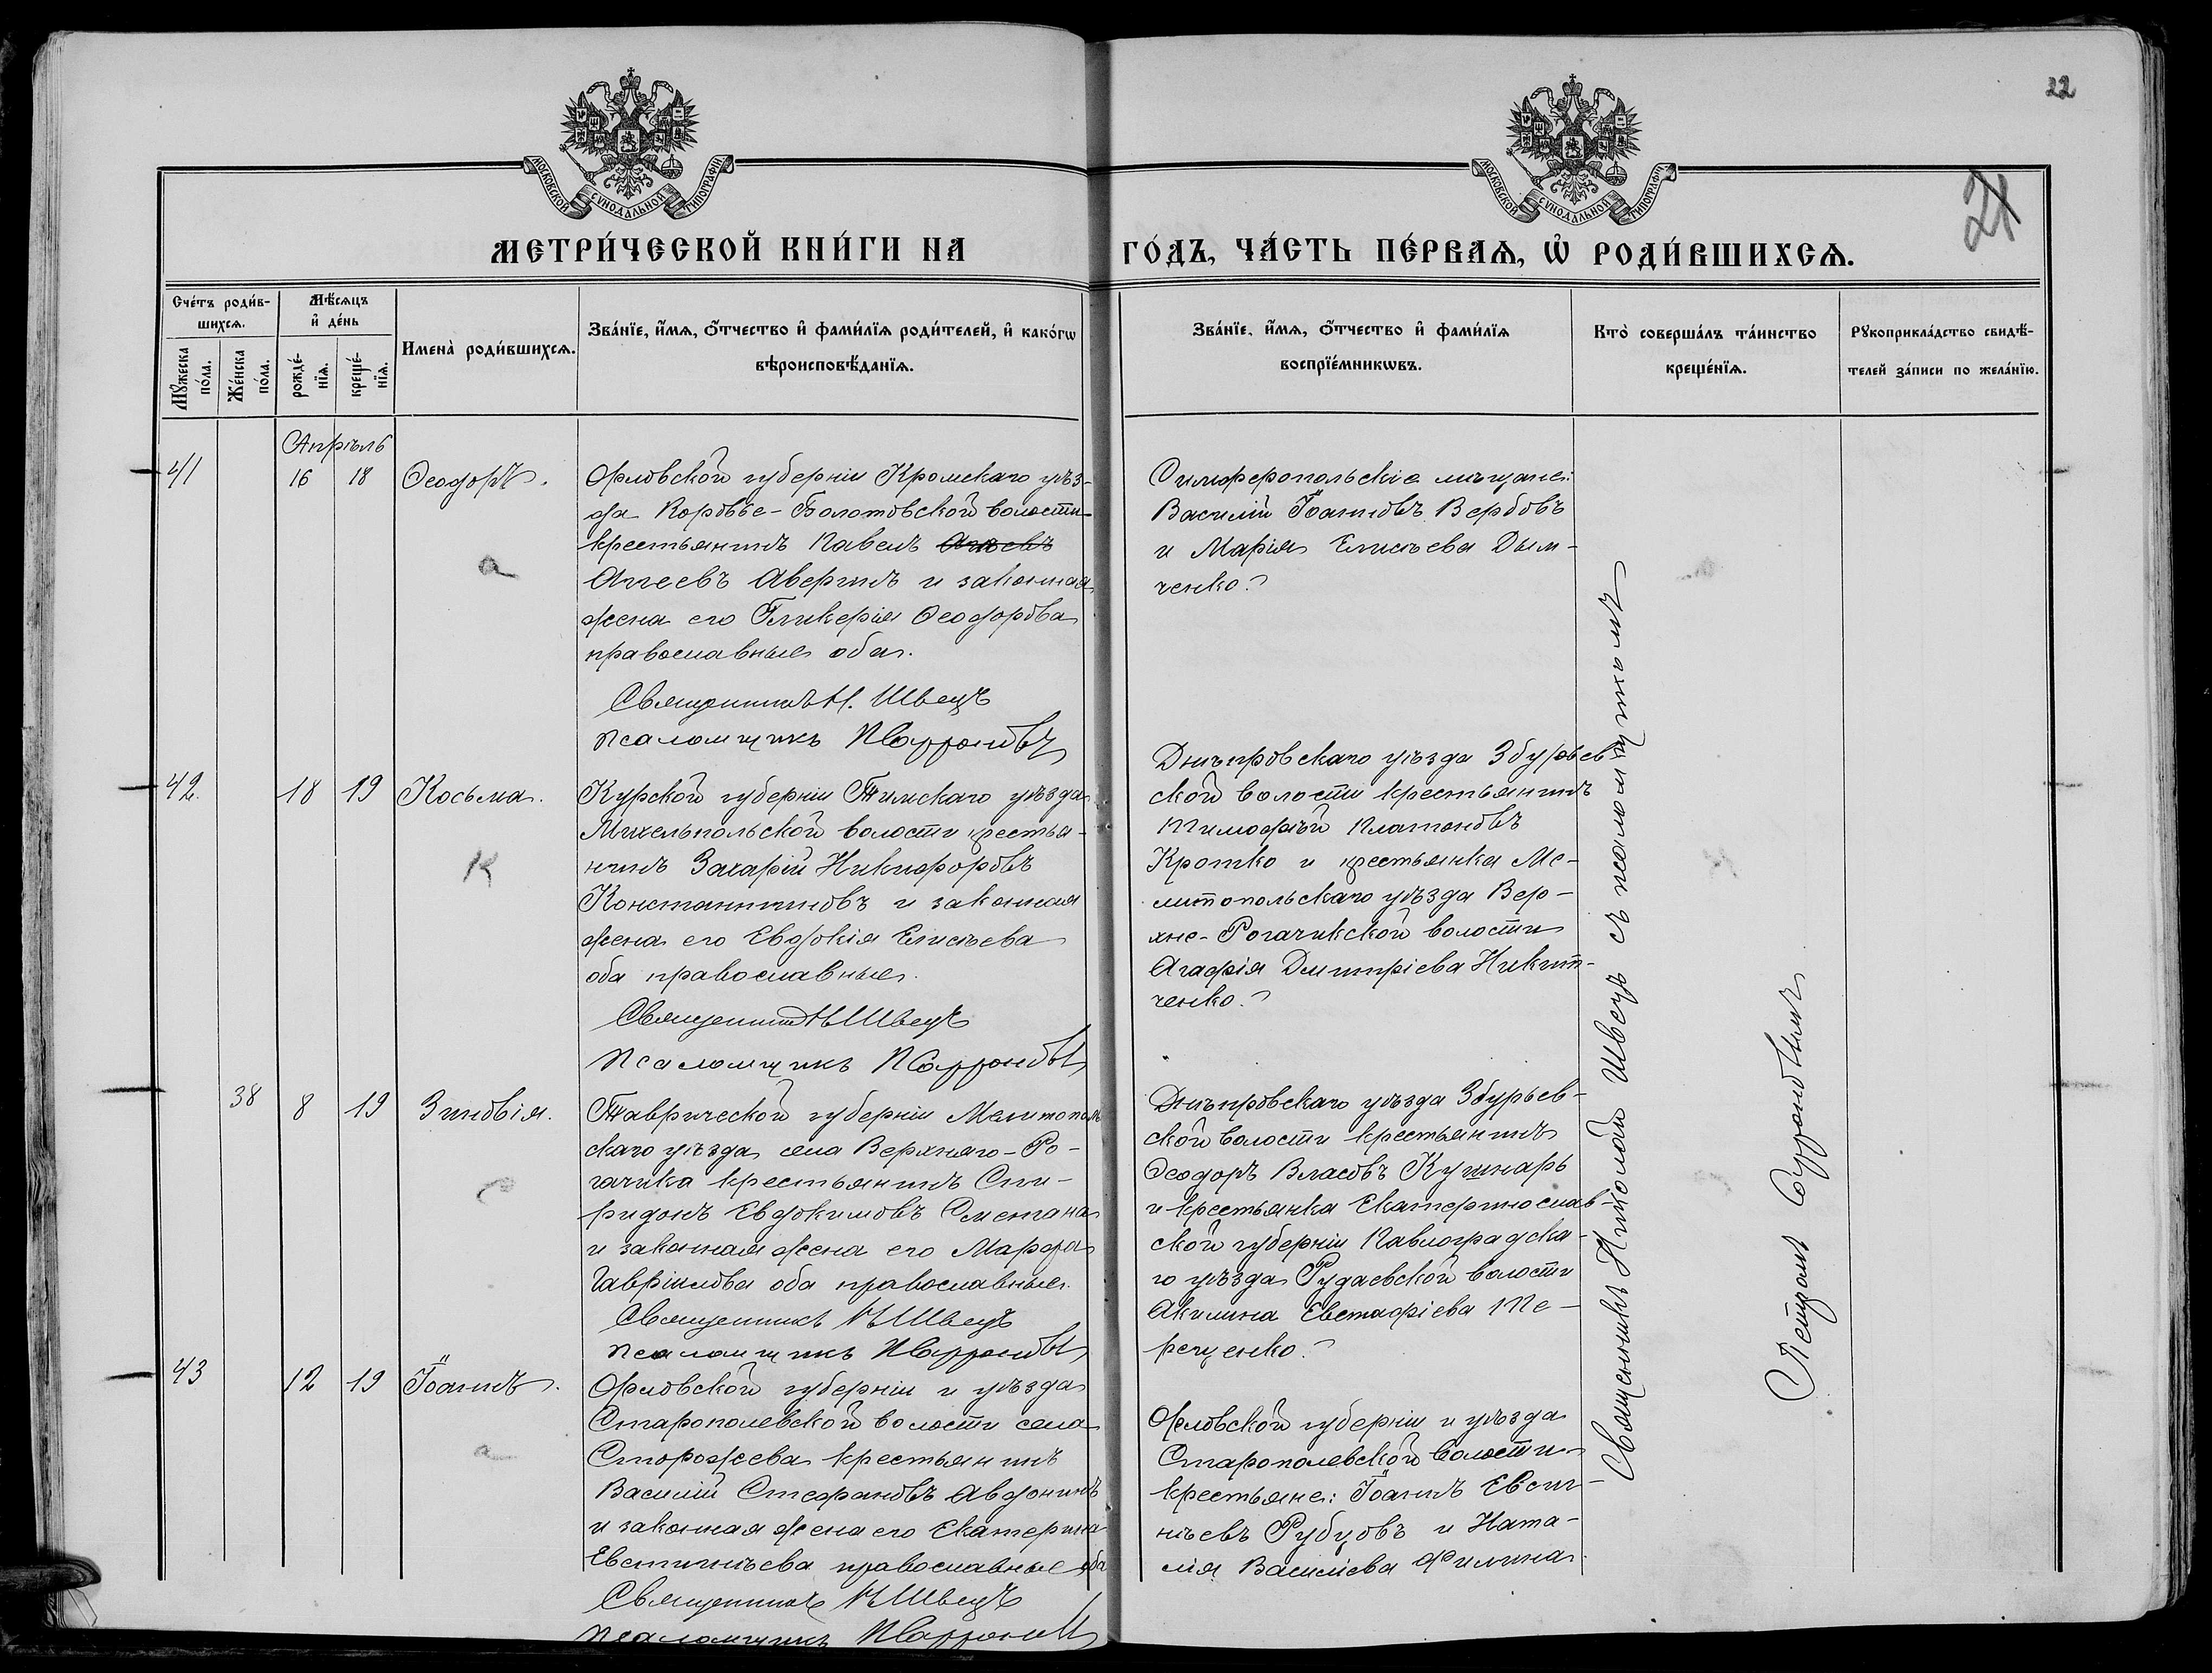 22
21
МОСКОВСКОЙ СѴНОДАЛЬНОЙ ТИПОГРАФІИ
МОСКОВСКОЙ СѴНОДАЛЬНОЙ ТИПОГРАФІИ
МЕТРИ́ЧЕСКОЙ КНИ́ГИ НА ГО́ДЪ, ЧА́СТЬ ПЕ́РВАѦ, Ѽ РОДИ́ВШИХСѦ.
Сче́тъ роди́в-
шихсѧ.
Мꙋжеска по́ла.
Же́нска по́ла.
Мѣ́сѧцъ
и҆ де́нь
рожде́-
нїѧ.
креще́-
нїѧ.
Имена̀ роди́вшихсѧ.
Зва́нїе, и҆́мѧ, ѻ҆́тчество и҆ фами́лїѧ роди́телей, и҆ како́гѡ
вѣроисповѣ́данїѧ.
Зва́нїе, и҆́мѧ, ѻ҆́тчество и҆ фами́лїѧ
воспрїе́мникѡвъ.
Кто̀ соверша́лъ та́инство
креще́нїѧ.
Рꙋкоприкла́дство свидѣ́-
телей за́писи по жела́нїю.
Апрѣль
41 16 18 Ѳеодоръ.
а
Орловской губерніи Кромскаго уѣз-
да Коровье-Болотовской волости
крестьянинъ Павелъ
Аггеевъ Аверинъ и законная
жена его Гликерія Ѳеодорова
православные оба.
Священникъ Н. Швецъ
Псаломщикъ П
Симферопольскіе мѣщане:
Василій Іоанновъ Вербовъ
и Марія Елисѣева Дым-
ченко.
42. 18 19 Косьма.
К
Курской губерніи Тимскаго уѣзда
Михельпольской волости крестья-
нинъ Захарій Никифоровъ
Константиновъ и законная
жена его Евдокія Елисѣева
оба православные.
Священникъ Н Швецъ
Псаломщикъ П
Днѣпровскаго уѣзда Збурьев-
ской волости крестьянинъ
Тимофей Платоновъ
Кротко и крестьянка Ме-
литопольскаго уѣзда Вер-
хне-Рогачикской волости
Агафія Димитріева Никит-
ченко.
38 8 19 Зиновія.
С
Таврической губерніи Мелитополь
скаго уѣзда села Верхняго-Ро-
гачика крестьянинъ Спи-
ридонъ Евдокимовъ Сметана
и законная жена его Марфа
Гавріилова оба православные.
Священникъ Н Швецъ
Псаломщикъ П
Днѣпровскаго уѣзда Збурьев-
ской волости крестьянинъ
Ѳеодоръ Власовъ Кушнарь
и крестьянка Екатеринослав-
ской губерніи Павлоградска-
го уѣзда Рудаевской волости
Акилина Евстафіева Те-
рещенко.
43 12 19 Іоаннъ.
а
Орловской губерніи и уѣзда
Старополевской волости села
Сторожева крестьянинъ
Василій Стефановъ Авдонинъ
и законная жена его Екатерина
Евстигнѣева православные оба
Священникъ Н Швецъ
Псаломщикъ П
Орловской губерніи и уѣзда
Старополевской волости
крестьяне: Іоаннъ Евсиг-
нѣевъ Рубцовъ и Ната-
лія Василіева Филина.
Священникъ Николай Швецъ съ псаломщикомъ
Петромъ